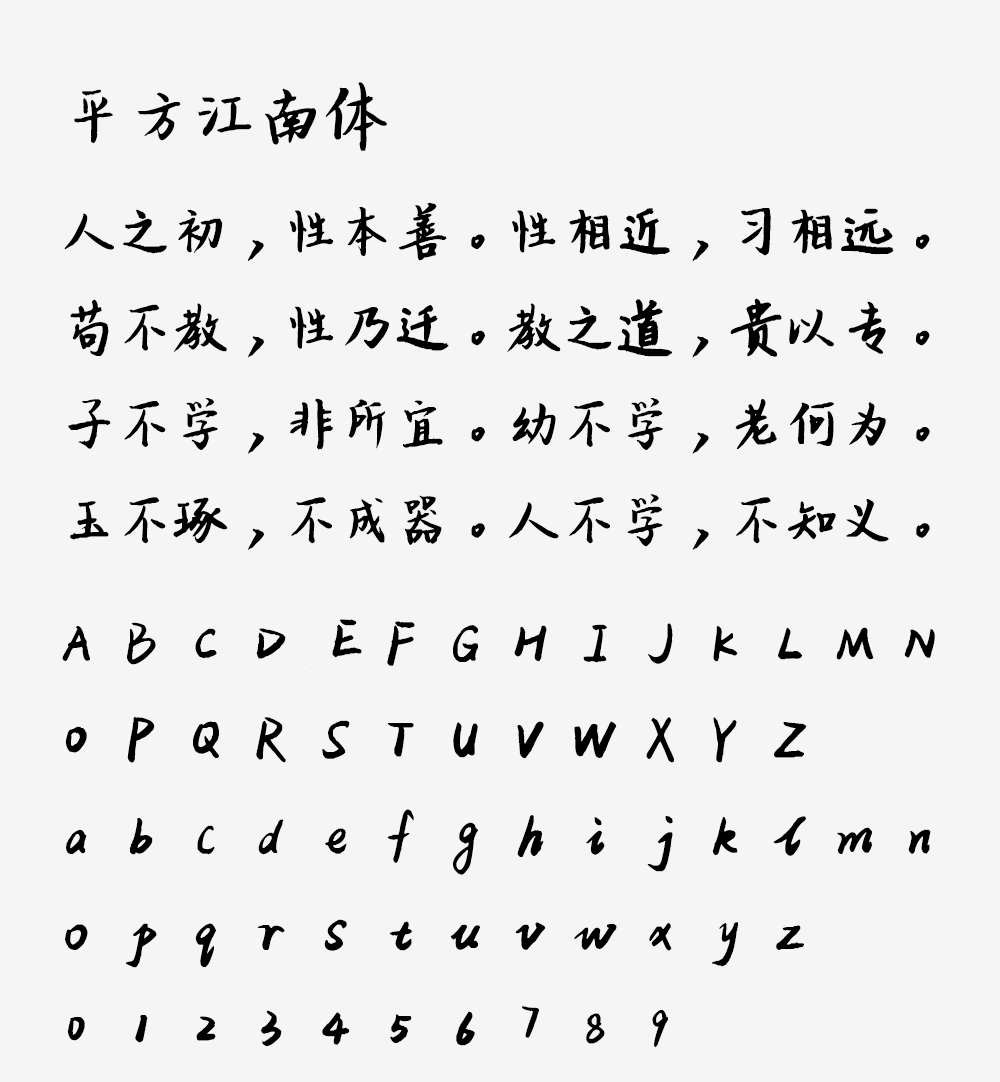 平方江南体
人之初，性本善。性相近，习相远。
苟不教，性乃迁。教之道，贵以专。
子不学，非所宜。幼不学，老何为。
玉不琢，不成器。人不学，不知义。
A B C D E F G H I J K L M N
O P Q R S T U V W X Y Z
a b c d e f g h i j k l m n
o p q r s t u v w x y z
0 1 2 3 4 5 6 7 8 9